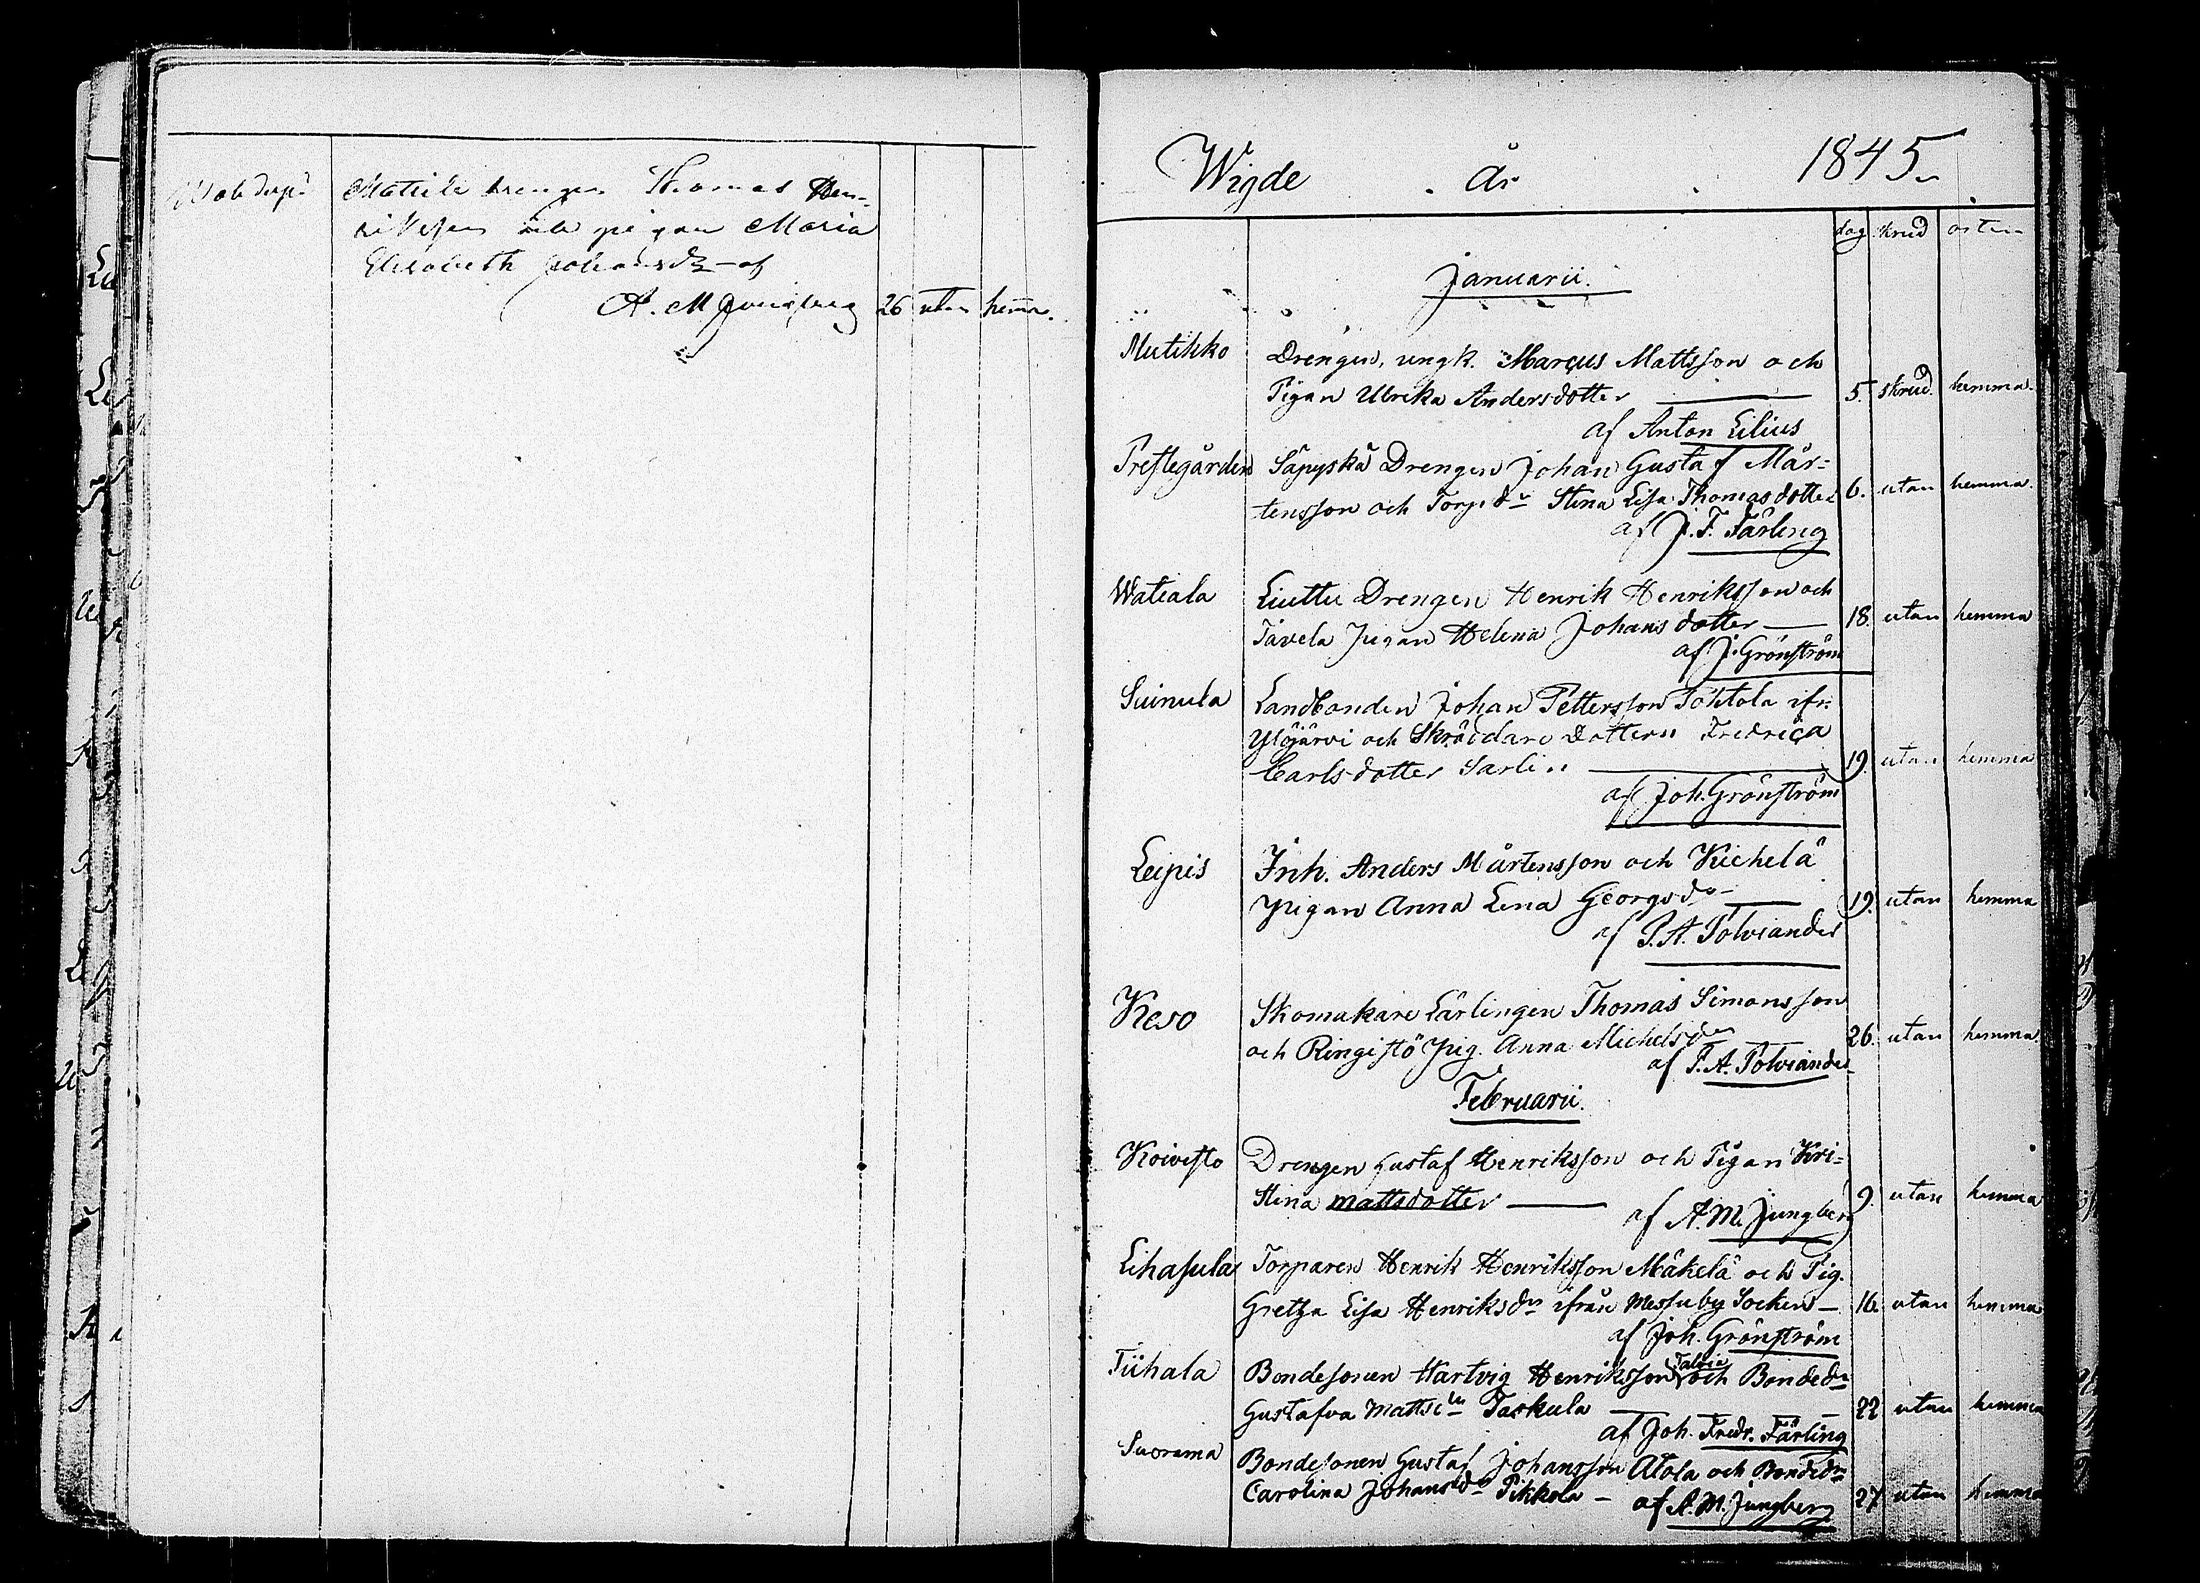 Mattila drengen Thomas Hen-
riksson och pigan Maria
Elisabeth Johansdr af
A. M. Jungberg 26 utan hemma.
Wigde år 1845
dag skrud
Januarii.
Mutikko Drengen, ungk. Marcus Mattsson och
Pigan Ulrika Andersdotter 5. skrud. hemma.
af Anton Lilius
Prestegården Säpyskä Drengen Johan Gustaf Mår-
tensson och Torp. dr Stina Lisa Thomasdotter 6. utan hemma.
af J. F. Färling
Watiala Liuttu Drengen Henrik Henriksson och
Tävela Pigan Helena Johansdotter 18. utan hemma
af J. Grönström
Suinula Landbonden Johan Pettersson Tohtola ifr:
Ylöjärvi och Skräddare Dottern Fredrica
Carlsdotter Sarlin 19. utan hemma
af Joh. Grönström
Leipis Inh. Anders Mårtensson och Kichelä
Pigan Anna Lena Georgsdr 19. utan hemma
af P. A. Polviander
Keso Skomakare Lärlingen Thomas Simonsson
och Ringistö Pig. Anna Michelsdr 26. utan hemma.
af P. A. Polviander
Februarii.
Koivisto Drengen Gustaf Henriksson och Pigan Kri-
stina Mattsdotter 9. utan hemma
af A. M. Jungberg
Lihasula Torparen Henrik Henriksson Mäkelä och Pig.
Gretha Lisa Henriksdr ifrån Messuby Socken 16 utan hemma
af Joh. Grönström
Talvia
Tiihala Bondesonen Hartvig Henriksson och Bondedr
Gustafva Mattsdr Taskula 22 utan hemma
af Joh. Fredr. Färling
Suorama Bondesonen Gustaf Johansson Alola och Bondedr
Carolina Johansdr Pikkola – af A. M. Jungberg 27 utan hemma